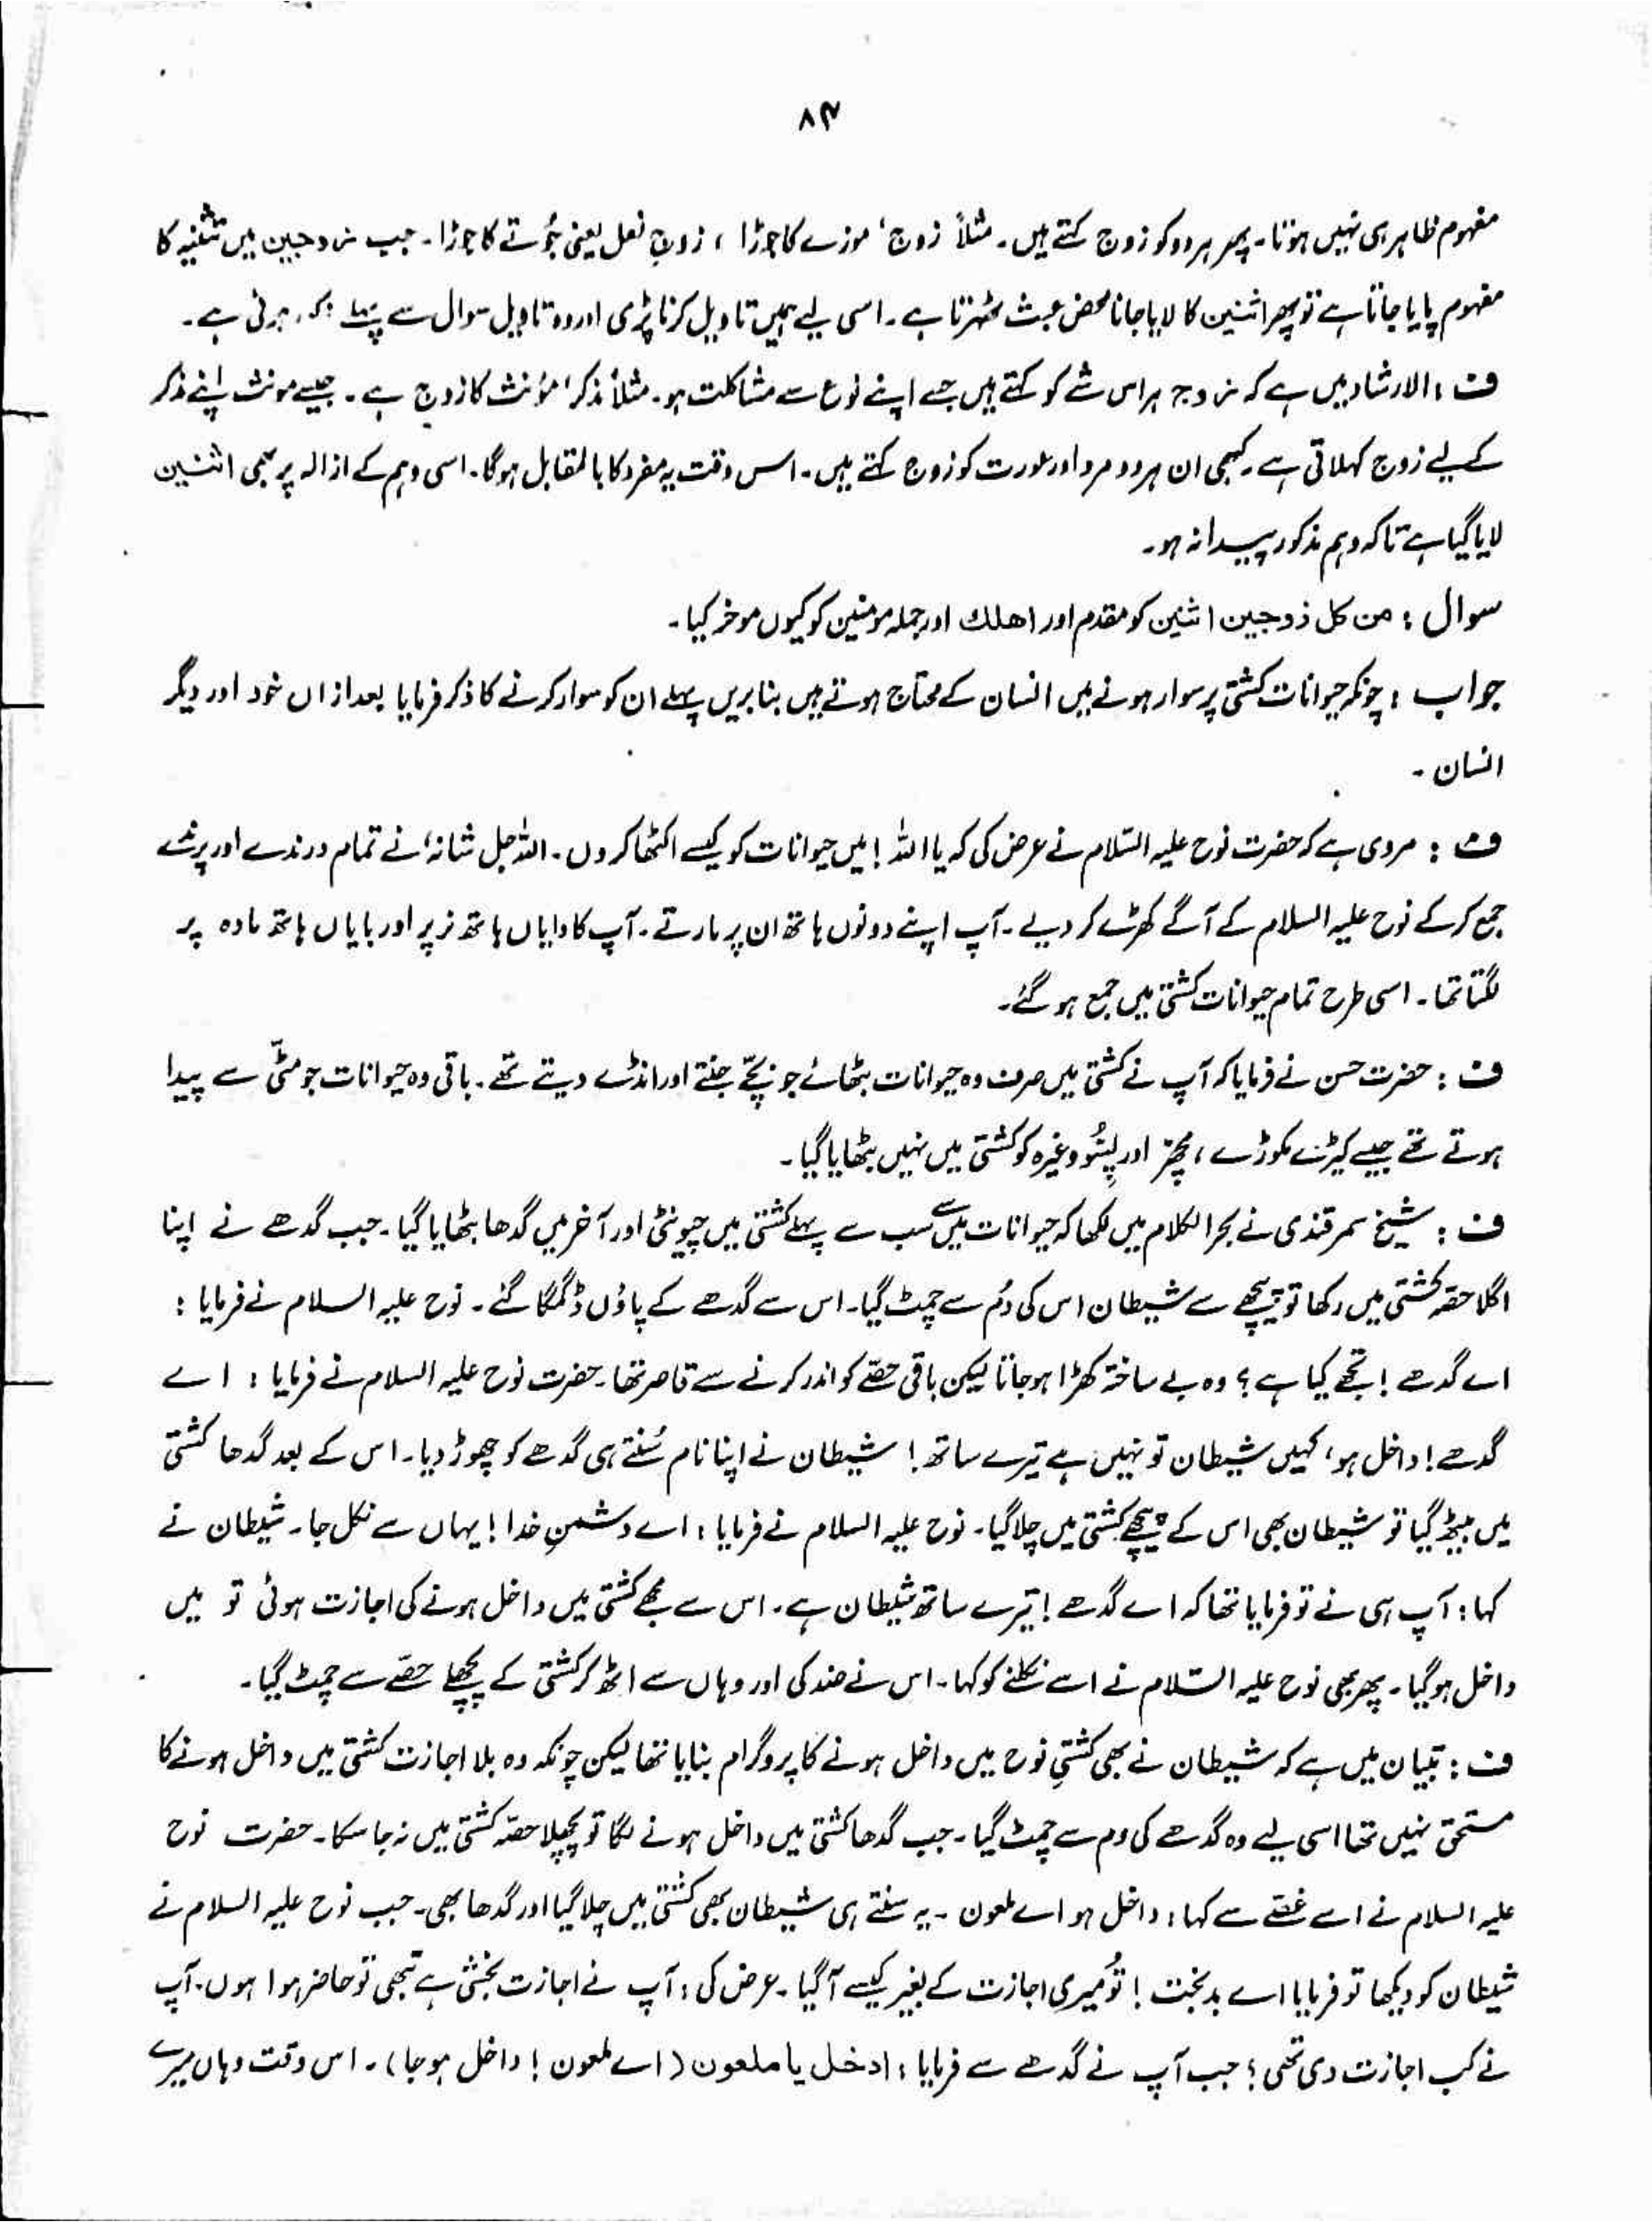 ۸۴
مفہوم ظاہر ہی نہیں ہوتا۔ پھر ہر دو کو زوج کہتے ہیں۔ مثلاً زوج ، موزے کا جوڑا ، زوجِ نعل یعنی جُوتے کا جوڑا۔ جب زوجین میں تثنیہ کا
مفہوم پایا جاتا ہے تو پھر اثنین کا لایا جانا محض عبث ٹھہرتا ہے۔ اسی لیے ہمیں تاویل کرنا پڑی اور وہ تاویل سوال سے پہلے ہوئی ہے۔
ف : الارشاد میں ہے کہ زوج ہر اس شے کو کہتے ہیں جسے اپنے نوع سے مشاکلت ہو۔ مثلاً مذکر ، مؤنث کا زوج ہے۔ جیسے مونث اپنے مذکر
کے لیے زوج کہلاتی ہے۔ کبھی ان ہر دو مرد اور عورت کو زوج کہتے ہیں۔ اس وقت یہ مفرد کا بالمقابل ہوگا۔ اسی وہم کے ازالہ پر بھی اثنین
لایا گیا ہے تاکہ وہم مذکور پیدا نہ ہو۔
سوال : من کل زوجین اثنین کو مقدم اور اھلك اور جملہ مومنین کو کیوں موخر کیا۔
جواب : چونکہ حیوانات کشتی پر سوار ہونے میں انسان کے محتاج ہوتے ہیں بنابریں پہلے ان کو سوار کرنے کا ذکر فرمایا بعد ازاں خود اور دیگر
انسان ۔
ف : مروی ہے کہ حضرت نوح علیہ السّلام نے عرض کی کہ یا اللہ ! میں حیوانات کو کیسے اکٹھا کروں۔ اللہ جل شانہٗ نے تمام درندے اور پرندے
جمع کر کے نوح علیہ السلام کے آگے کھڑے کر دیے۔ آپ اپنے دونوں ہاتھ ان پر مارتے۔ آپ کا دایاں ہاتھ نر پر اور بایاں ہاتھ مادہ پر
لگتا تھا۔ اسی طرح تمام حیوانات کشتی میں جمع ہو گئے۔
ف : حضرت حسن نے فرمایا کہ آپ نے کشتی میں صرف وہ حیوانات بٹھائے جو بچّے جنتے اور انڈے دیتے تھے۔ باقی وہ حیوانات جو مٹّی سے پیدا
ہوتے تھے جیسے کیڑے مکوڑے ، مچھّر اور پِسُّو وغیرہ کو کشتی میں نہیں بٹھایا گیا۔
ف : شیخ سمرقندی نے بحر الکلام میں لکھا کہ حیوانات میں سے سب سے پہلے کشتی میں چیونٹی اور آخر میں گدھا بٹھایا گیا۔ جب گدھے نے اپنا
اگلا حصّہ کشتی میں رکھا تو پیچھے سے شیطان اس کی دُم سے چمٹ گیا۔ اس سے گدھے کے پاؤں ڈگمگا گئے۔ نوح علیہ السلام نے فرمایا :
اے گدھے ! تجھے کیا ہے ؟ وہ بے ساختہ کھڑا ہو جاتا لیکن باقی حصّے کو اندر کرنے سے قاصر تھا۔ حضرت نوح علیہ السلام نے فرمایا : اے
گدھے ! داخل ہو ، کہیں شیطان تو نہیں ہے تیرے ساتھ ! شیطان نے اپنا نام سُنتے ہی گدھے کو چھوڑ دیا۔ اس کے بعد گدھا کشتی
میں بیٹھ گیا تو شیطان بھی اس کے پیچھے کشتی میں چلا گیا۔ نوح علیہ السلام نے فرمایا : اے دشمنِ خدا ! یہاں سے نکل جا۔ شیطان نے
کہا : آپ ہی نے تو فرمایا تھا کہ اے گدھے ! تیرے ساتھ شیطان ہے۔ اس سے مجھے کشتی میں داخل ہونے کی اجازت ہوئی تو میں
داخل ہو گیا۔ پھر بھی نوح علیہ السّلام نے اسے نکلنے کو کہا۔ اس نے ضد کی اور وہاں سے اٹھ کر کشتی کے پچھلے حصّے سے چمٹ گیا۔
ف : تبیان میں ہے کہ شیطان نے بھی کشتیِ نوح میں داخل ہونے کا پروگرام بنایا تھا لیکن چونکہ وہ بلا اجازت کشتی میں داخل ہونے کا
مستحق نہیں تھا اسی لیے وہ گدھے کی دم سے چمٹ گیا۔ جب گدھا کشتی میں داخل ہونے لگا تو پچھلا حصّہ کشتی میں نہ جا سکا۔ حضرت نوح
علیہ السلام نے اسے غصّے سے کہا : داخل ہو اے ملعون ۔ یہ سنتے ہی شیطان بھی کشتی میں چلا گیا اور گدھا بھی۔ جب نوح علیہ السلام نے
شیطان کو دیکھا تو فرمایا اے بدبخت ! تُو میری اجازت کے بغیر کیسے آ گیا۔ عرض کی : آپ نے اجازت بخشی ہے تبھی تو حاضر ہوا ہوں۔ آپ
نے کب اجازت دی تھی ؟ جب آپ نے گدھے سے فرمایا : ادخل یا ملعون (اے ملعون ! داخل ہو جا)۔ اس وقت وہاں میرے